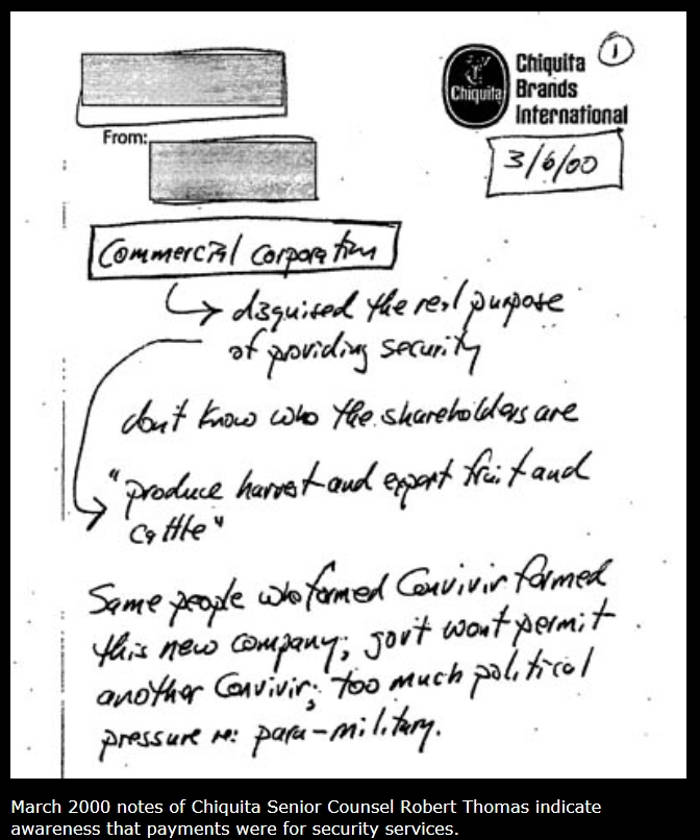 1
Chiquita
Chiquita
Brands
International
From:
3/6/00
Commercial Corporation
disguised the real purpose
of providing security
don't know who the shareholders are
"produce harvest and export fruit and
cattle"
Same people who formed Convivir formed
this new company; gov't won't permit
another Convivir; too much political
pressure re: para-military.
March 2000 notes of Chiquita Senior Counsel Robert Thomas indicate
awareness that payments were for security services.